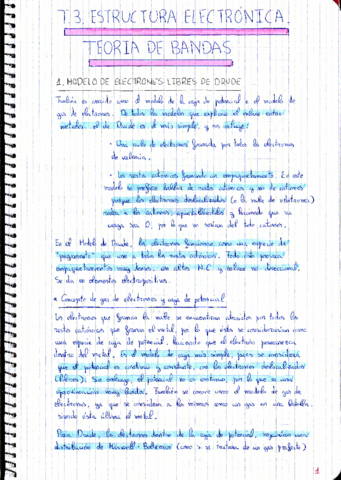 T.3. ESTRUCTURA ELECTRÓNICA.
TEORÍA DE BANDAS
1. MODELO DE ELECTRONES LIBRES DE DRUDE
También es conocido como el modelo de la caja de potencial o el modelo de
gas de electrones. De todos los modelos que explican el enlace entre
metales, el de Drude es el más simple, y se incluye:
· Una nube de electrones formada por todos los electrones
de valencia.
· Los restos catiónicos formando un empaquetamiento. En este
modelo se prefiere hablar de restos catiónicos y no de cationes
porque los electrones deslocalizados (o la nube de electrones)
rodea a los cationes, apantallándolos y haciendo que su
carga sea 0, por lo que no serían del todo cationes.
En el Model de Drude, los electrones funcionan como una especie de
"pegamento" que une a todos los restos catiónicos. Todo esto provoca
empaquetamientos muy densos, con altos N.C y enlace no direccional.
Se da en elementos electropositivos.
* Concepto de gas de electrones y caja de potencial
Los electrones que forman la nube se encuentran atraídos por todos los
restos catiónicos que forman el metal, por lo que éste se consideraría como
una especie de caja de potencial. Haciendo que el electrón permanezca
dentro del metal. Es el modelo de caja más simple, pues se considera
que el potencial es continuo y constante, con los electrones deslocalizados
(libres). Sin embargo, el potencial no es continuo, por lo que es una
aproximación muy burda. También se conoce como el modelo de gas de
electrones, ya que se considera a los mismos como un gas en una botella,
siendo ésta última el metal.
Para Drude, los electrones dentro de la caja de potencial, seguirían una
distribución de Maxwell-Boltzmann (como si se tratasen de un gas perfecto)
1